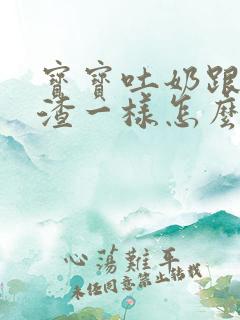 寶寶吐奶跟
渣一樣怎麼
心蕩難平
未经同意禁止转载